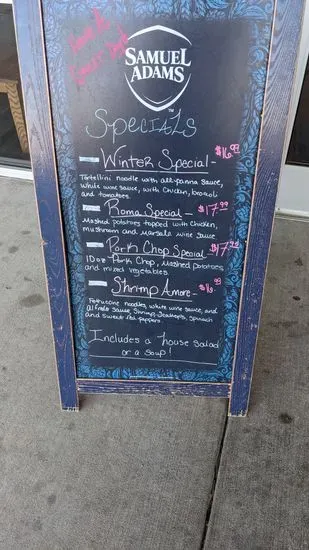 SAMUEL
ADAMS
TM
Specials
Winter Special - $16.99
Tortellini noodle with all-panna sauce,
white wine sauce, with chicken, broccoli
and tomatoes.
Roma Special - $17.99
Mashed potatoes topped with chicken,
mushroom and marsala wine sauce
Pork Chop Special - $17.99
10oz Pork Chop, Mashed potatoes
and mixed vegetables.
Shrimp Amore - $16.99
Fettuccine noodles, white wine sauce, and
Alfredo sauce Shrimp, spinach
and sweet red peppers.
Includes a house salad
or a soup!